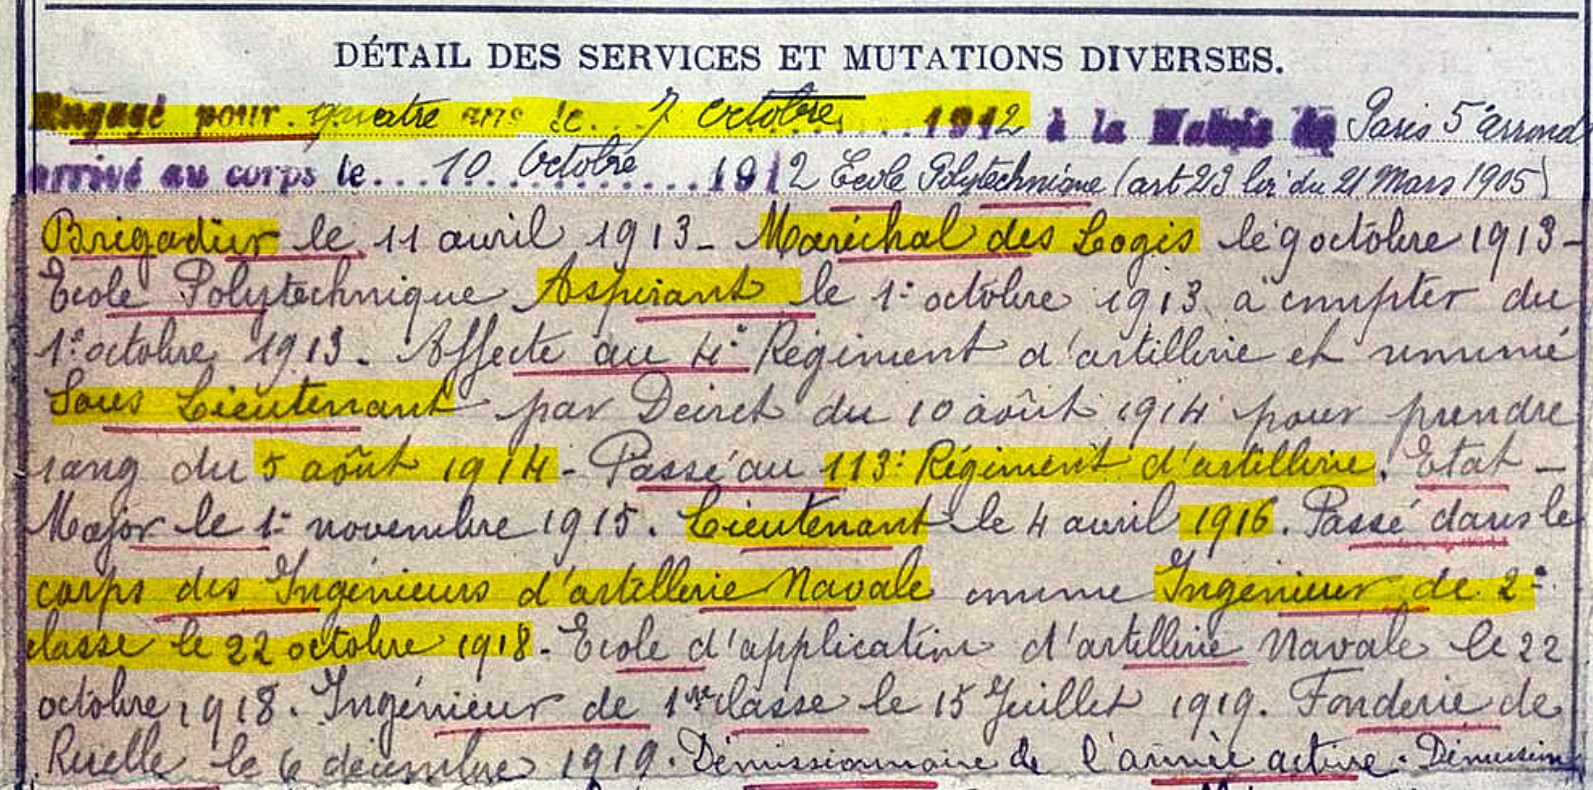 DÉTAIL DES SERVICES ET MUTATIONS DIVERSES.
Engagé pour quatre ans le 7 Octobre 1912 à la Mairie du Paris 5e arrond
arrivé au corps le 10 Octobre 1912 Ecole Polytechnique (art 23 loi du 21 Mars 1905)
Brigadier le 11 avril 1913 - Maréchal des Logis le 9 octobre 1913 -
Ecole Polytechnique Aspirant le 1er octobre 1913 à compter du
1er octobre 1913 - Affecté au 4e Régiment d'artillerie et nommé
Sous Lieutenant par Décret du 10 août 1914 pour prendre
rang du 5 août 1914 - Passé au 113e Régiment d'artillerie. Etat -
Major le 1er novembre 1915. Lieutenant le 4 avril 1916. Passé dans le
corps des Ingénieurs d'artillerie Navale comme Ingénieur de 2e
classe le 22 octobre 1918 - Ecole d'application d'artillerie Navale le 22
octobre 1918. Ingénieur de 1ère classe le 15 Juillet 1919. Fonderie de
Ruelle le 6 décembre 1919. Démissionnaire de l'armée active. Démission